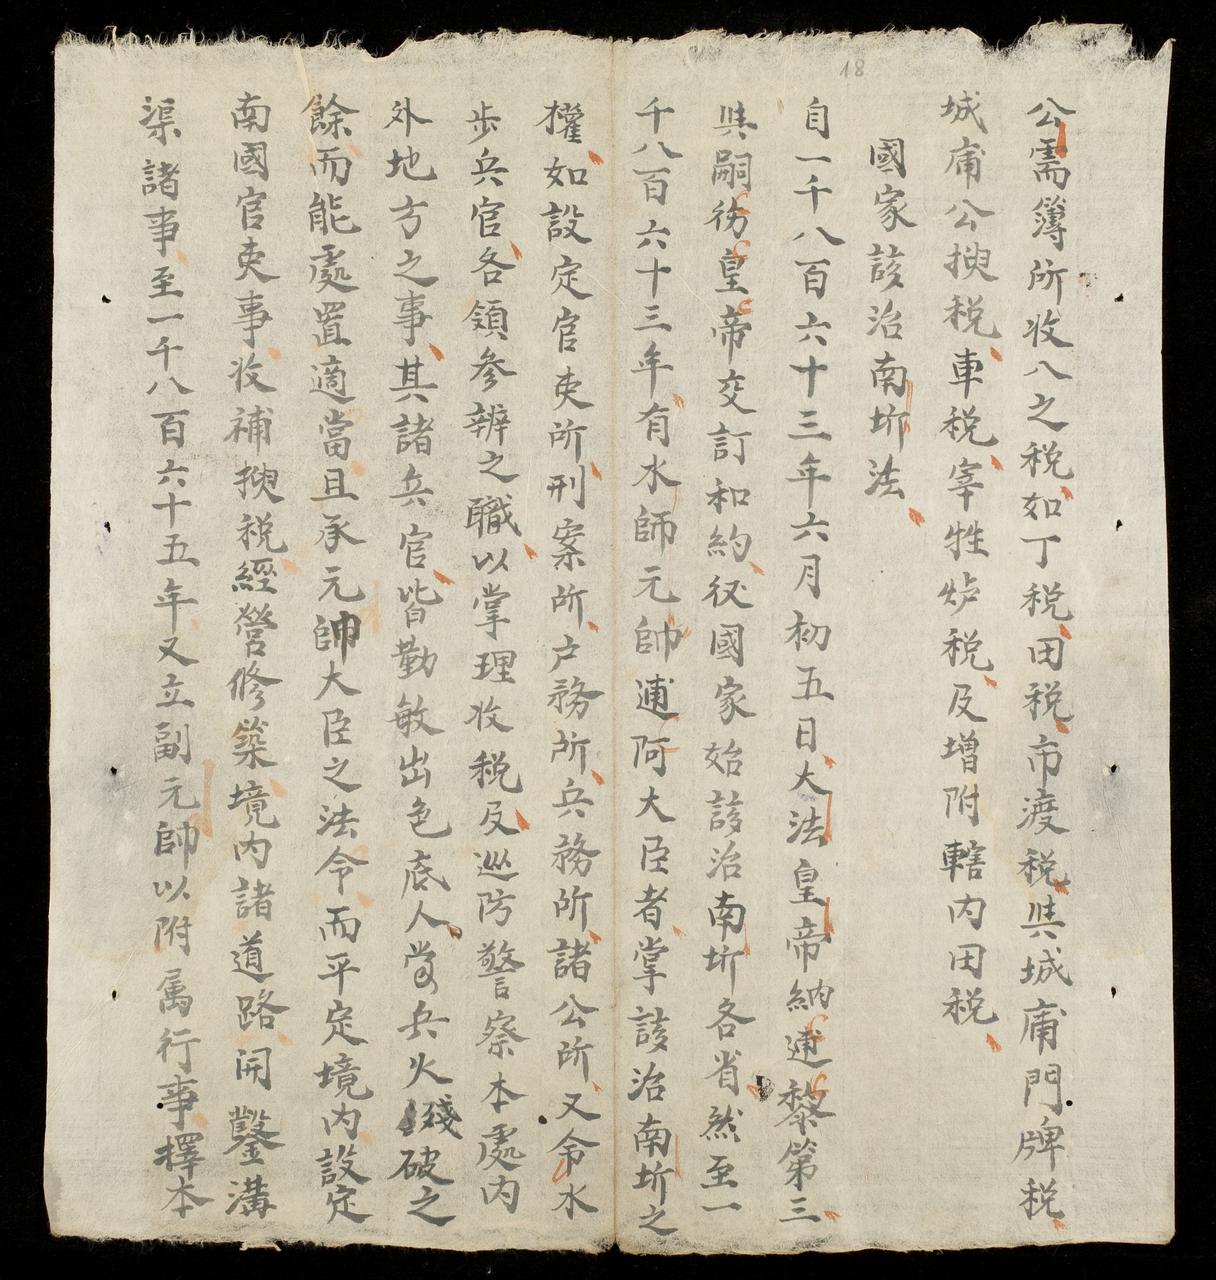 18
公需簿所收八之税如丁税田税市渡税與城庯門牌税
城庯公搜税車税宰牲炉税及增附轄内田税
國家該治南圻法
自一千八百六十三年六月初五日大法皇帝納逋黎第三
與嗣彷皇帝交訂和約後國家始該治南圻各省然至一
千八百六十三年有水師元帥逋阿大臣者掌該治南圻之
權如設定官吏所刑案所户務所兵務所諸公所又令水
步兵官各領參辨之職以掌理收税及巡防警察本處内
外地方之事其諸兵官皆勤敏出色底人當兵火殘破之
餘而能處置適當且承元帥大臣之法令而平定境内設定
南國官吏事收補搜税經營修築境内諸道路開鑿溝
渠諸事至一千八百六十五年又立副元帥以附属行事擇本